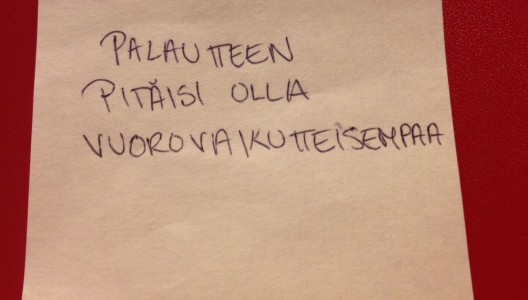 PALAUTTEEN
PITÄISI OLLA
VUOROVAIKUTTEISEMPAA